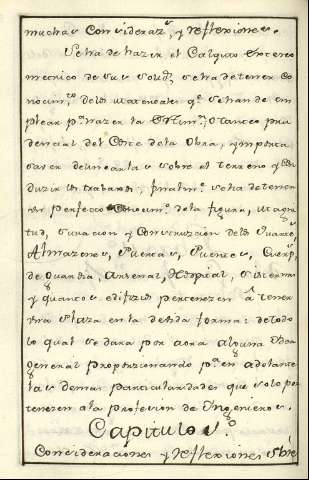 muchas Consideraz.s, y reflexiones.
Se ha de hazer el Calquro Estereo
metrico de sus solid.s se ha de tener Co
nocim.to de los materiales q.e se han de em
plear p.a hazer la Estim.n, o tanteo pru
dencial del Coste de la Obra, y importa
saver delinearla sobre el terreno y con
duzir los trabaxos; finalm.te se ha de tener
un perfecto Conocim.to de la figura, Magni
tud, situacion y Construczion de los Quarte
Almazenes, Puertas, Puentes, Cuerp.s
de Guardia, Arsenal, Hospital, Sisternas
y quantos edifizios pertenezen â tener
una Plaza en la devida forma: de todo
lo qual se dara por aora alguna Idea
general proporzionando p.a en adelante
las demas particularidades que solo per
tenezen a la profesion de Ingenieros.
Capitulo 5.o
Consideraciones y reflexiones sbre